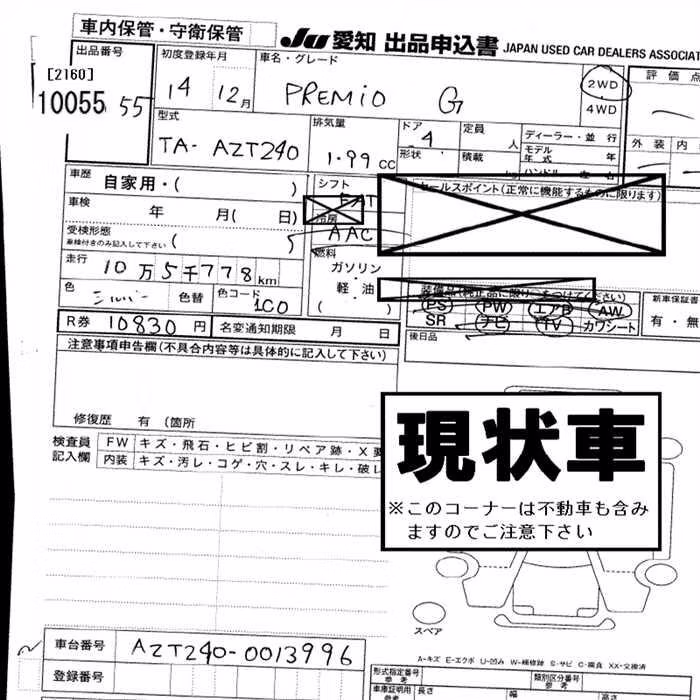 車内保管・守衛保管
JU 愛知 出品申込書 JAPAN USED CAR DEALERS ASSOCIAT
出品番号 初度登録年月 車名・グレード 評価点
[2160]
10055 55 14 12月 PREMIO G 2WD
4WD
型式 排気量 ドア 定員 人 ディーラー・並行 外装 内
TA- AZT240 1.99 CC 4 形状 積載 モデル年式 年
ハンドル
車歴 自家用・( ) シフト FAT セールスポイント(正常に機能するものに限ります)
車検 年 月( 日) 冷房 AAC
受検形態
車検付きのみ記入して下さい ( 燃料
走行 10万5千778km ガソリン
色 シルバー 色替 色コード 1C0 軽油 ( ) 装備品(純正品に限り○をつけて下さい) 新車保証書
PS PW エアB AW 有・無
R券 10830円 名変通知期限 月 日 SR ナビ TV カワシート
注意事項申告欄(不具合内容等は具体的に記入して下さい) 後日品
修復歴 有 (箇所
検査員 FW キズ・飛石・ヒビ割・リペア跡・X
記入欄 内装 キズ・汚レ・コゲ・穴・スレ・キレ・破レ
現状車
※このコーナーは不動車も含み
ますのでご注意下さい
スペア
A-キズ E-エクボ U-凹み W-補修跡 S-サビ C-腐食 XX-交換済
車台番号 AZT240-0013996
登録番号
形式指定番号 参考 類別区分番号 参考
車庫証明用 参考 長さ 幅 高さ